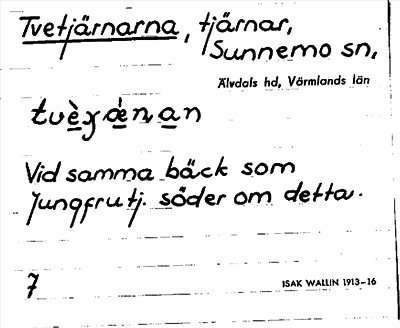 Tvetjärnarna, tjärnar,
Sunnemo sn,
Älvdals hd, Värmlands län
Vid samma bäck som
Jungfrutj. söder om detta.
7
ISAK WALLIN 1913-16